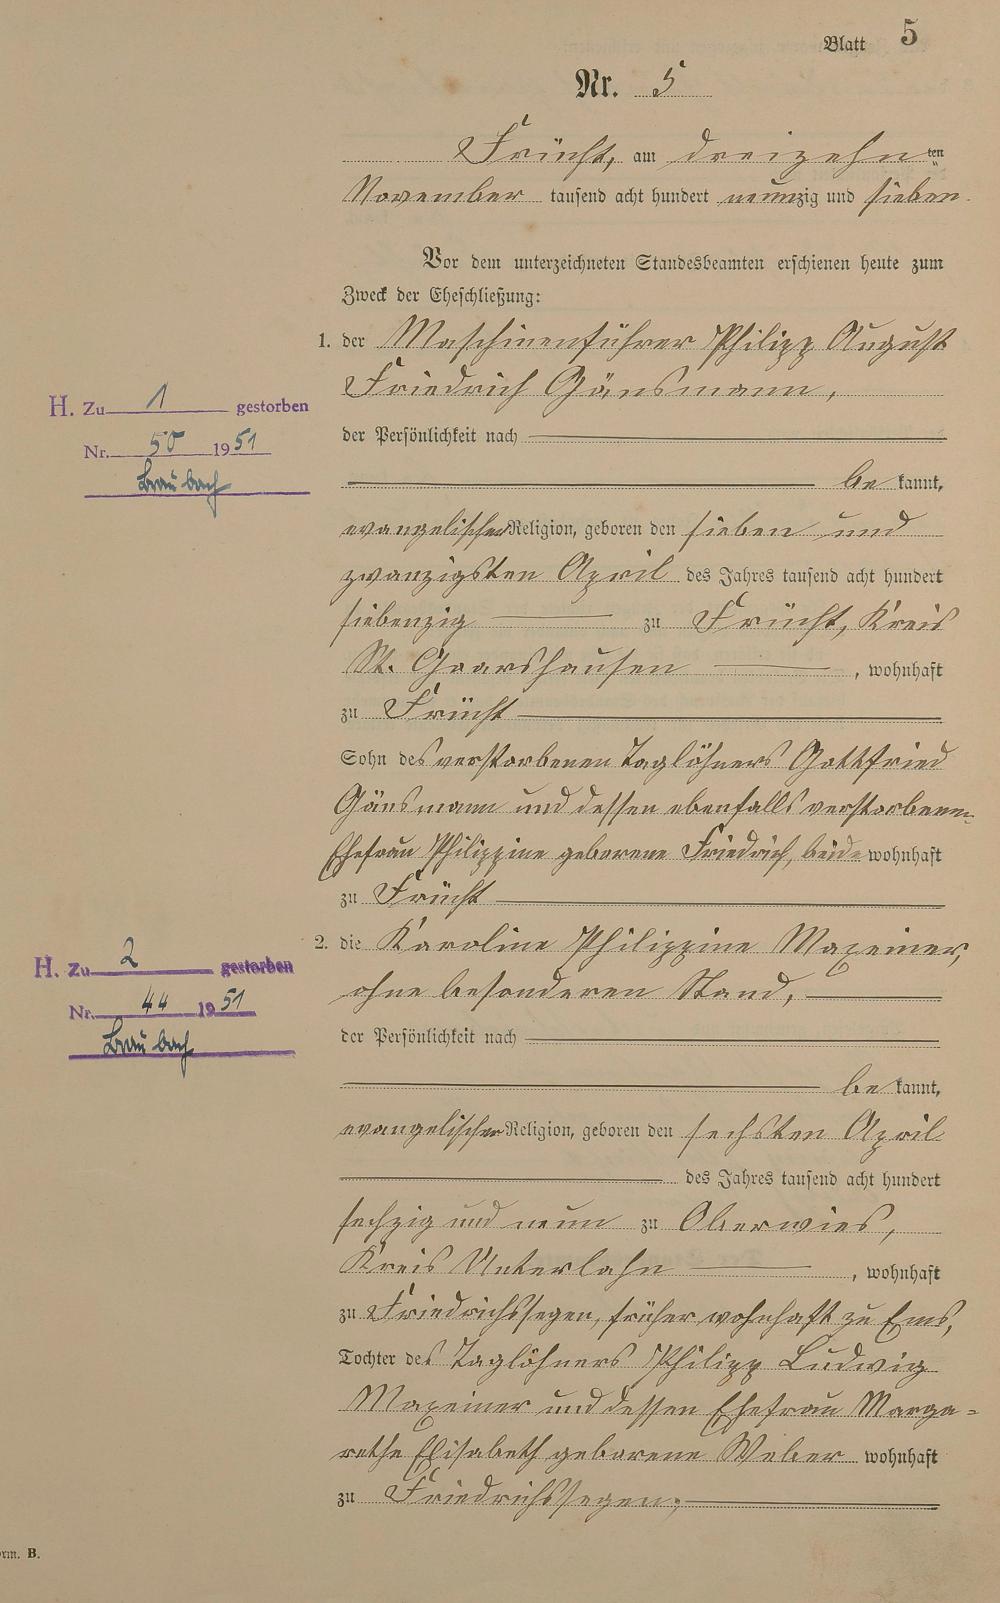 Blatt 5
Nr. 5
Frücht, am dreizehnten
November tausend acht hundert neunzig und sieben.
Vor dem unterzeichneten Standesbeamten erschienen heute zum
Zweck der Eheschließung:
1. der Maschinenführer Philipp August
Friedrich Gänsmann,
der Persönlichkeit nach
bekannt,
evangelischer Religion, geboren den sieben und
zwanzigsten April des Jahres tausend acht hundert
siebenzig zu Frücht, Kreis
St. Goarshausen, wohnhaft
zu Frücht
Sohn des verstorbenen Taglöhners Gottfried
Gänsmann und dessen ebenfalls verstorbenen
Ehefrau Philippine geborene Friedrich, beide wohnhaft
zu Frücht
2. die Karoline Philippine Maxeiner,
ohne besonderen Stand,
der Persönlichkeit nach
bekannt,
evangelischer Religion, geboren den sechsten April
des Jahres tausend acht hundert
sechzig und neun zu Oberwies,
Kreis Unterlahn, wohnhaft
zu Friedrichssegen, früher wohnhaft zu Ems,
Tochter des Taglöhners Philipp Ludwig
Maxeiner und dessen Ehefrau Marga=
rethe Elisabeth geborene Weber wohnhaft
zu Friedrichssegen,
H. Zu 1 gestorben
Nr. 50 1951
Braubach
H. Zu 2 gestorben
Nr. 44 1951
Braubach
orm. B.